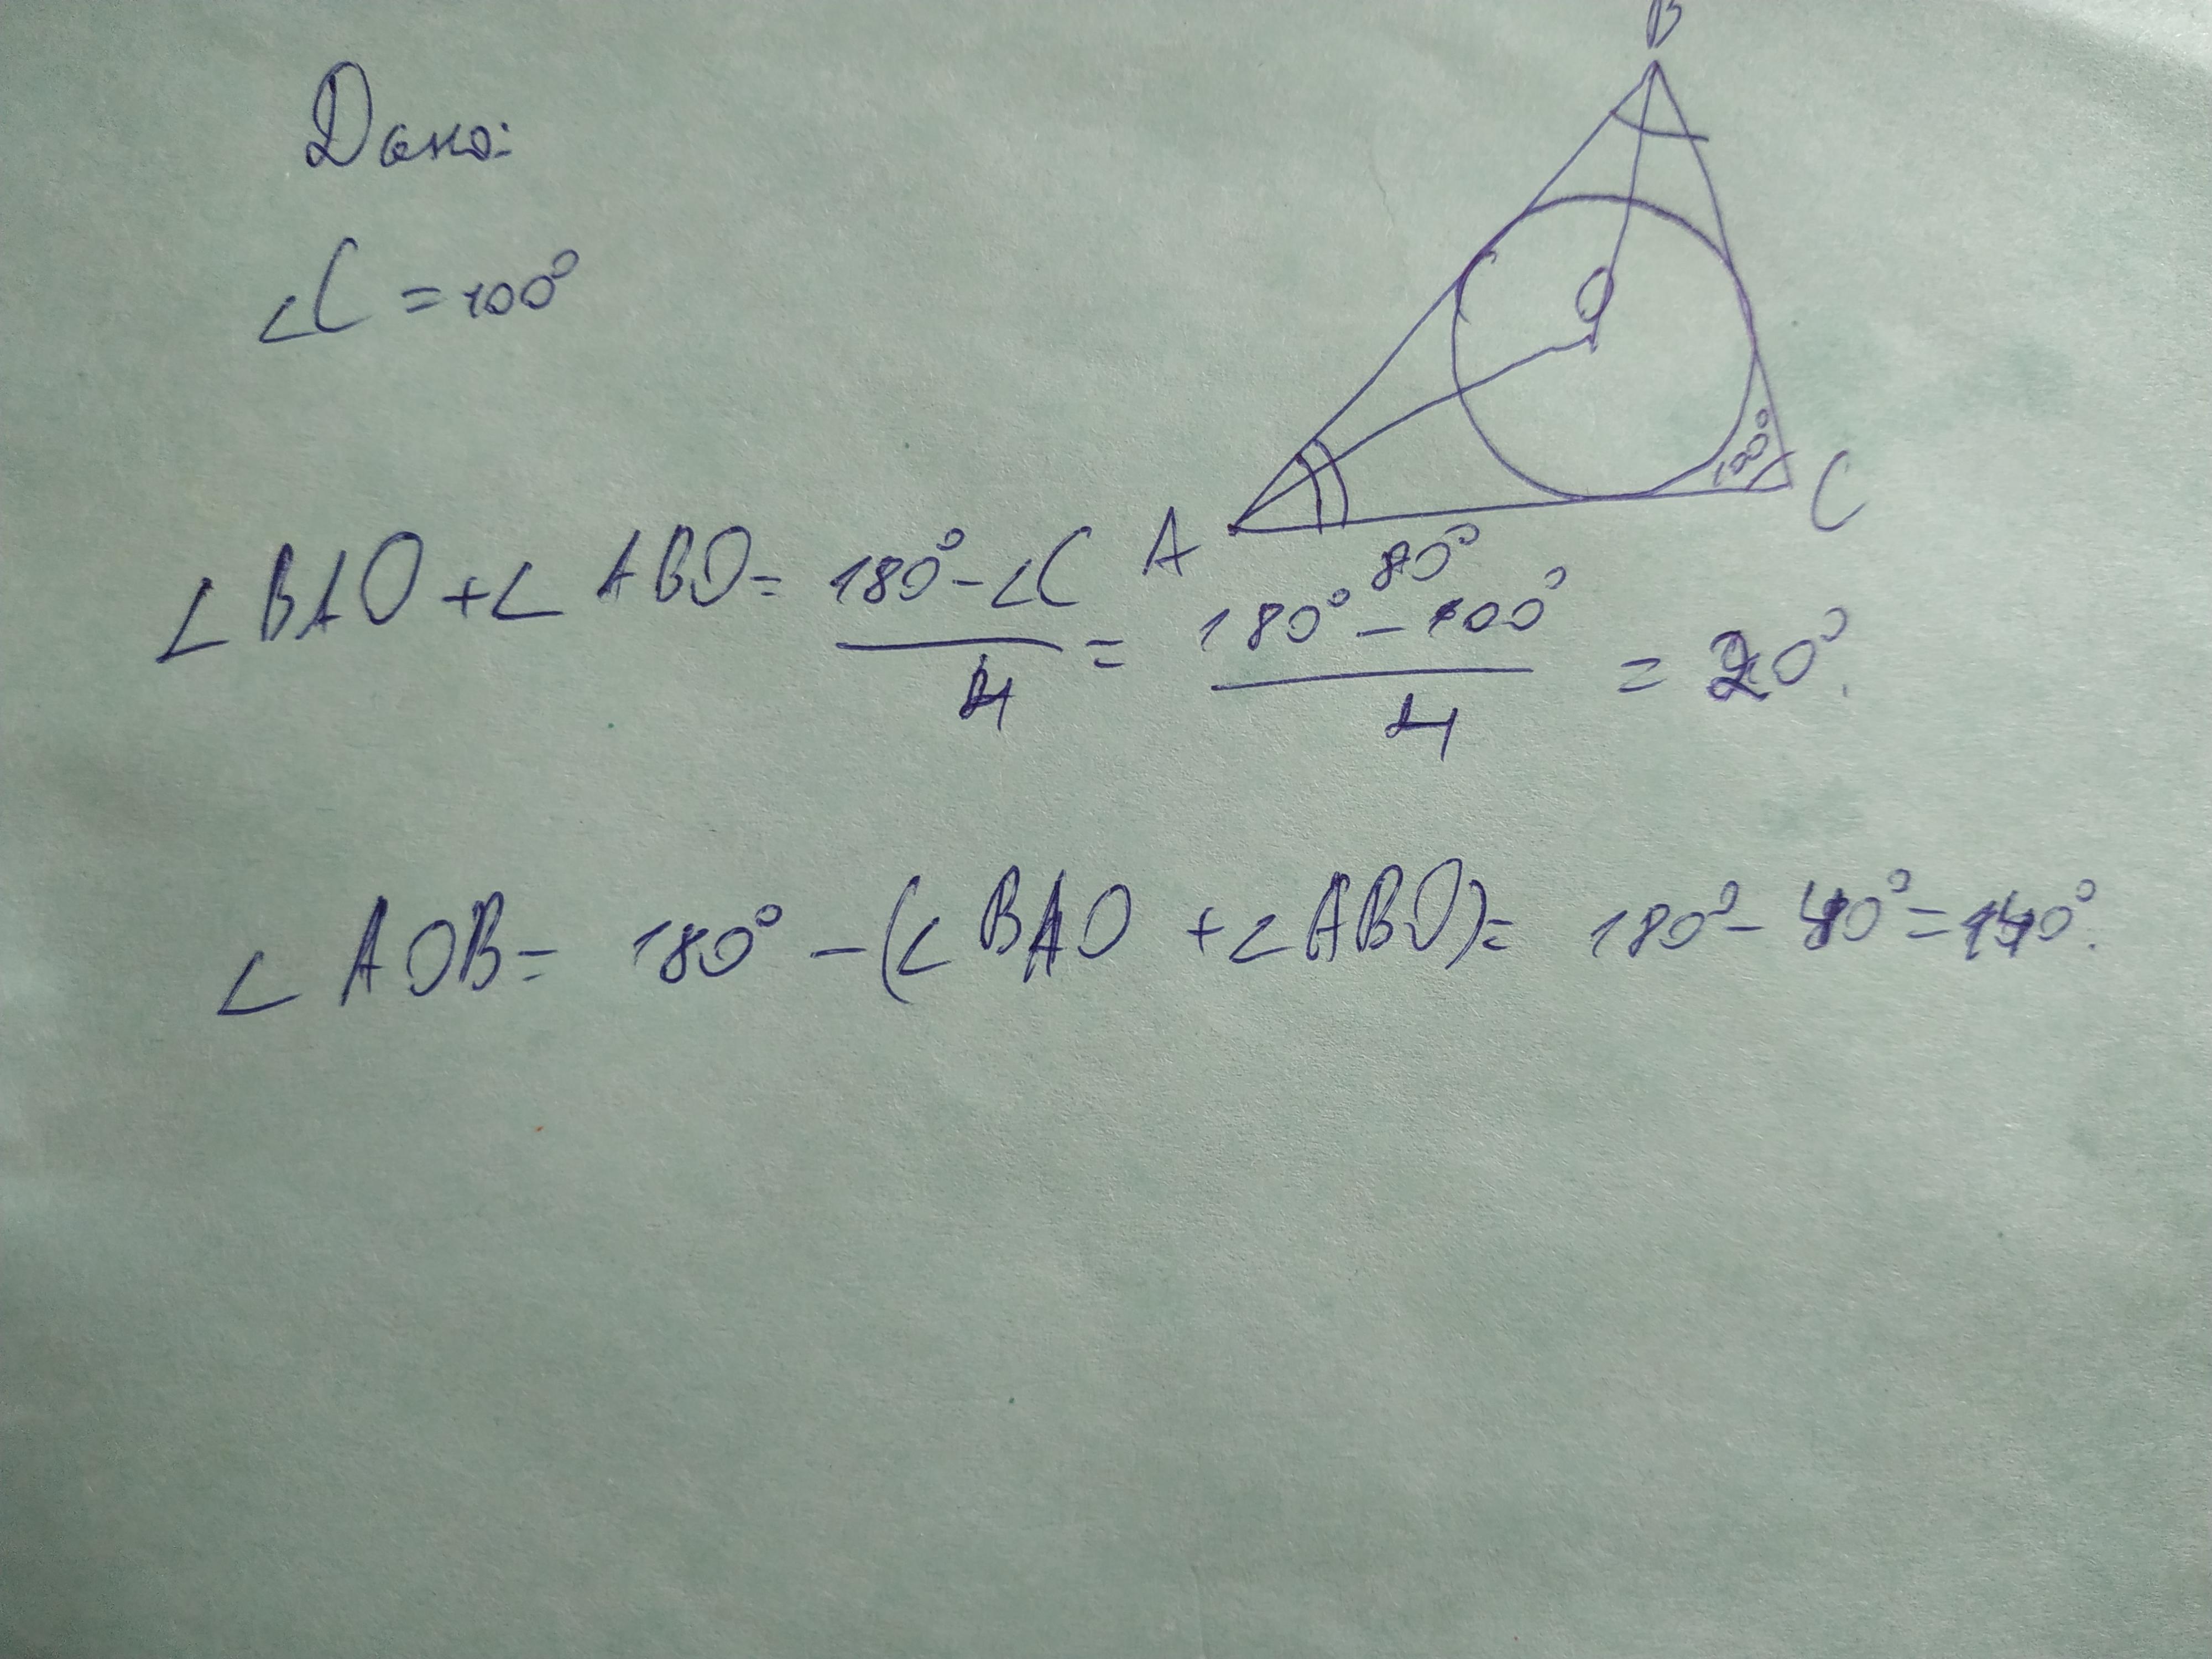 Дано:
∠C = 100°
B
O
100°
A
C
80°
∠BAO + ∠ABO = 180° - ∠C / 4 = 180° - 100° / 4 = 20°.
∠AOB = 180° - (∠BAO + ∠ABO) = 180° - 40° = 140°.